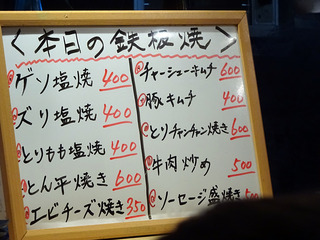 ＜本日の鉄板焼＞
@ゲソ塩焼 400
@ズリ塩焼 400
@とりもも塩焼 400
@とん平焼き 600
@エビチーズ焼き 350
@チャーシューキムチ 600
@豚キムチ 400
@とりチャンチャン焼き 600
@牛肉炒め 500
@ソーセージ盛焼き 500